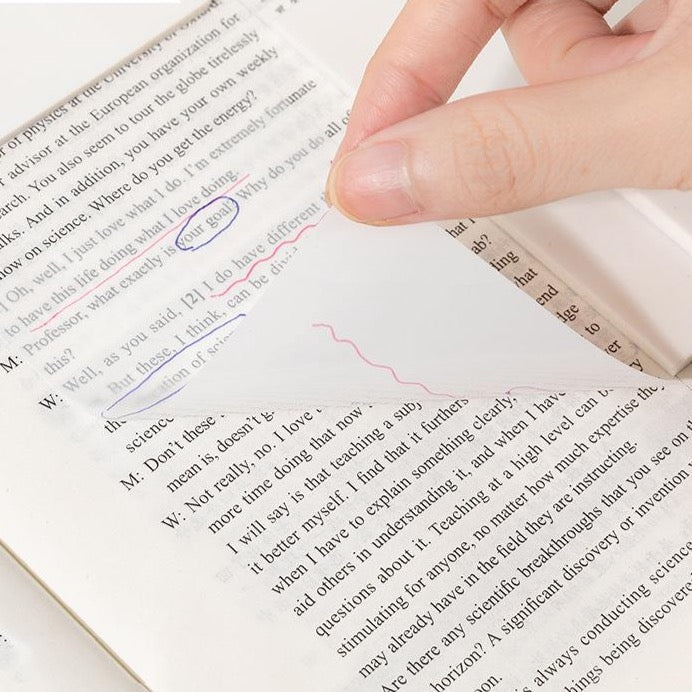 of physics at the University of
advisor at the European organization for
arch. You also seem to tour the globe tirelessly
lks. And in addition, you have your own weekly
now on science. Where do you get the energy?
Oh, well, I just love what I do. I'm extremely fortunate
to have this life doing what I love doing.
M: Professor, what exactly is your goal? Why do you do all of
this?
W: Well, as you said, [2] I do have different
But these, I think, can be divi
tion of scie
the
science
M: Don't these
mean is, doesn't g
W: Not really, no. I love t
more time doing that now
I will say is that teaching a subj
it better myself. I find that it furthers
when I have to explain something clearly
aid others in understanding it, and when I have
questions about it. Teaching at a high level can b
stimulating for anyone, no matter how much expertise the
may already have in the field they are instructing.
Are there any scientific breakthroughs that you see on t
horizon? A significant discovery or invention
oon.
s always conducting science
hings being discovere
that I
ab?
ling
hat
end
dge
to
ver